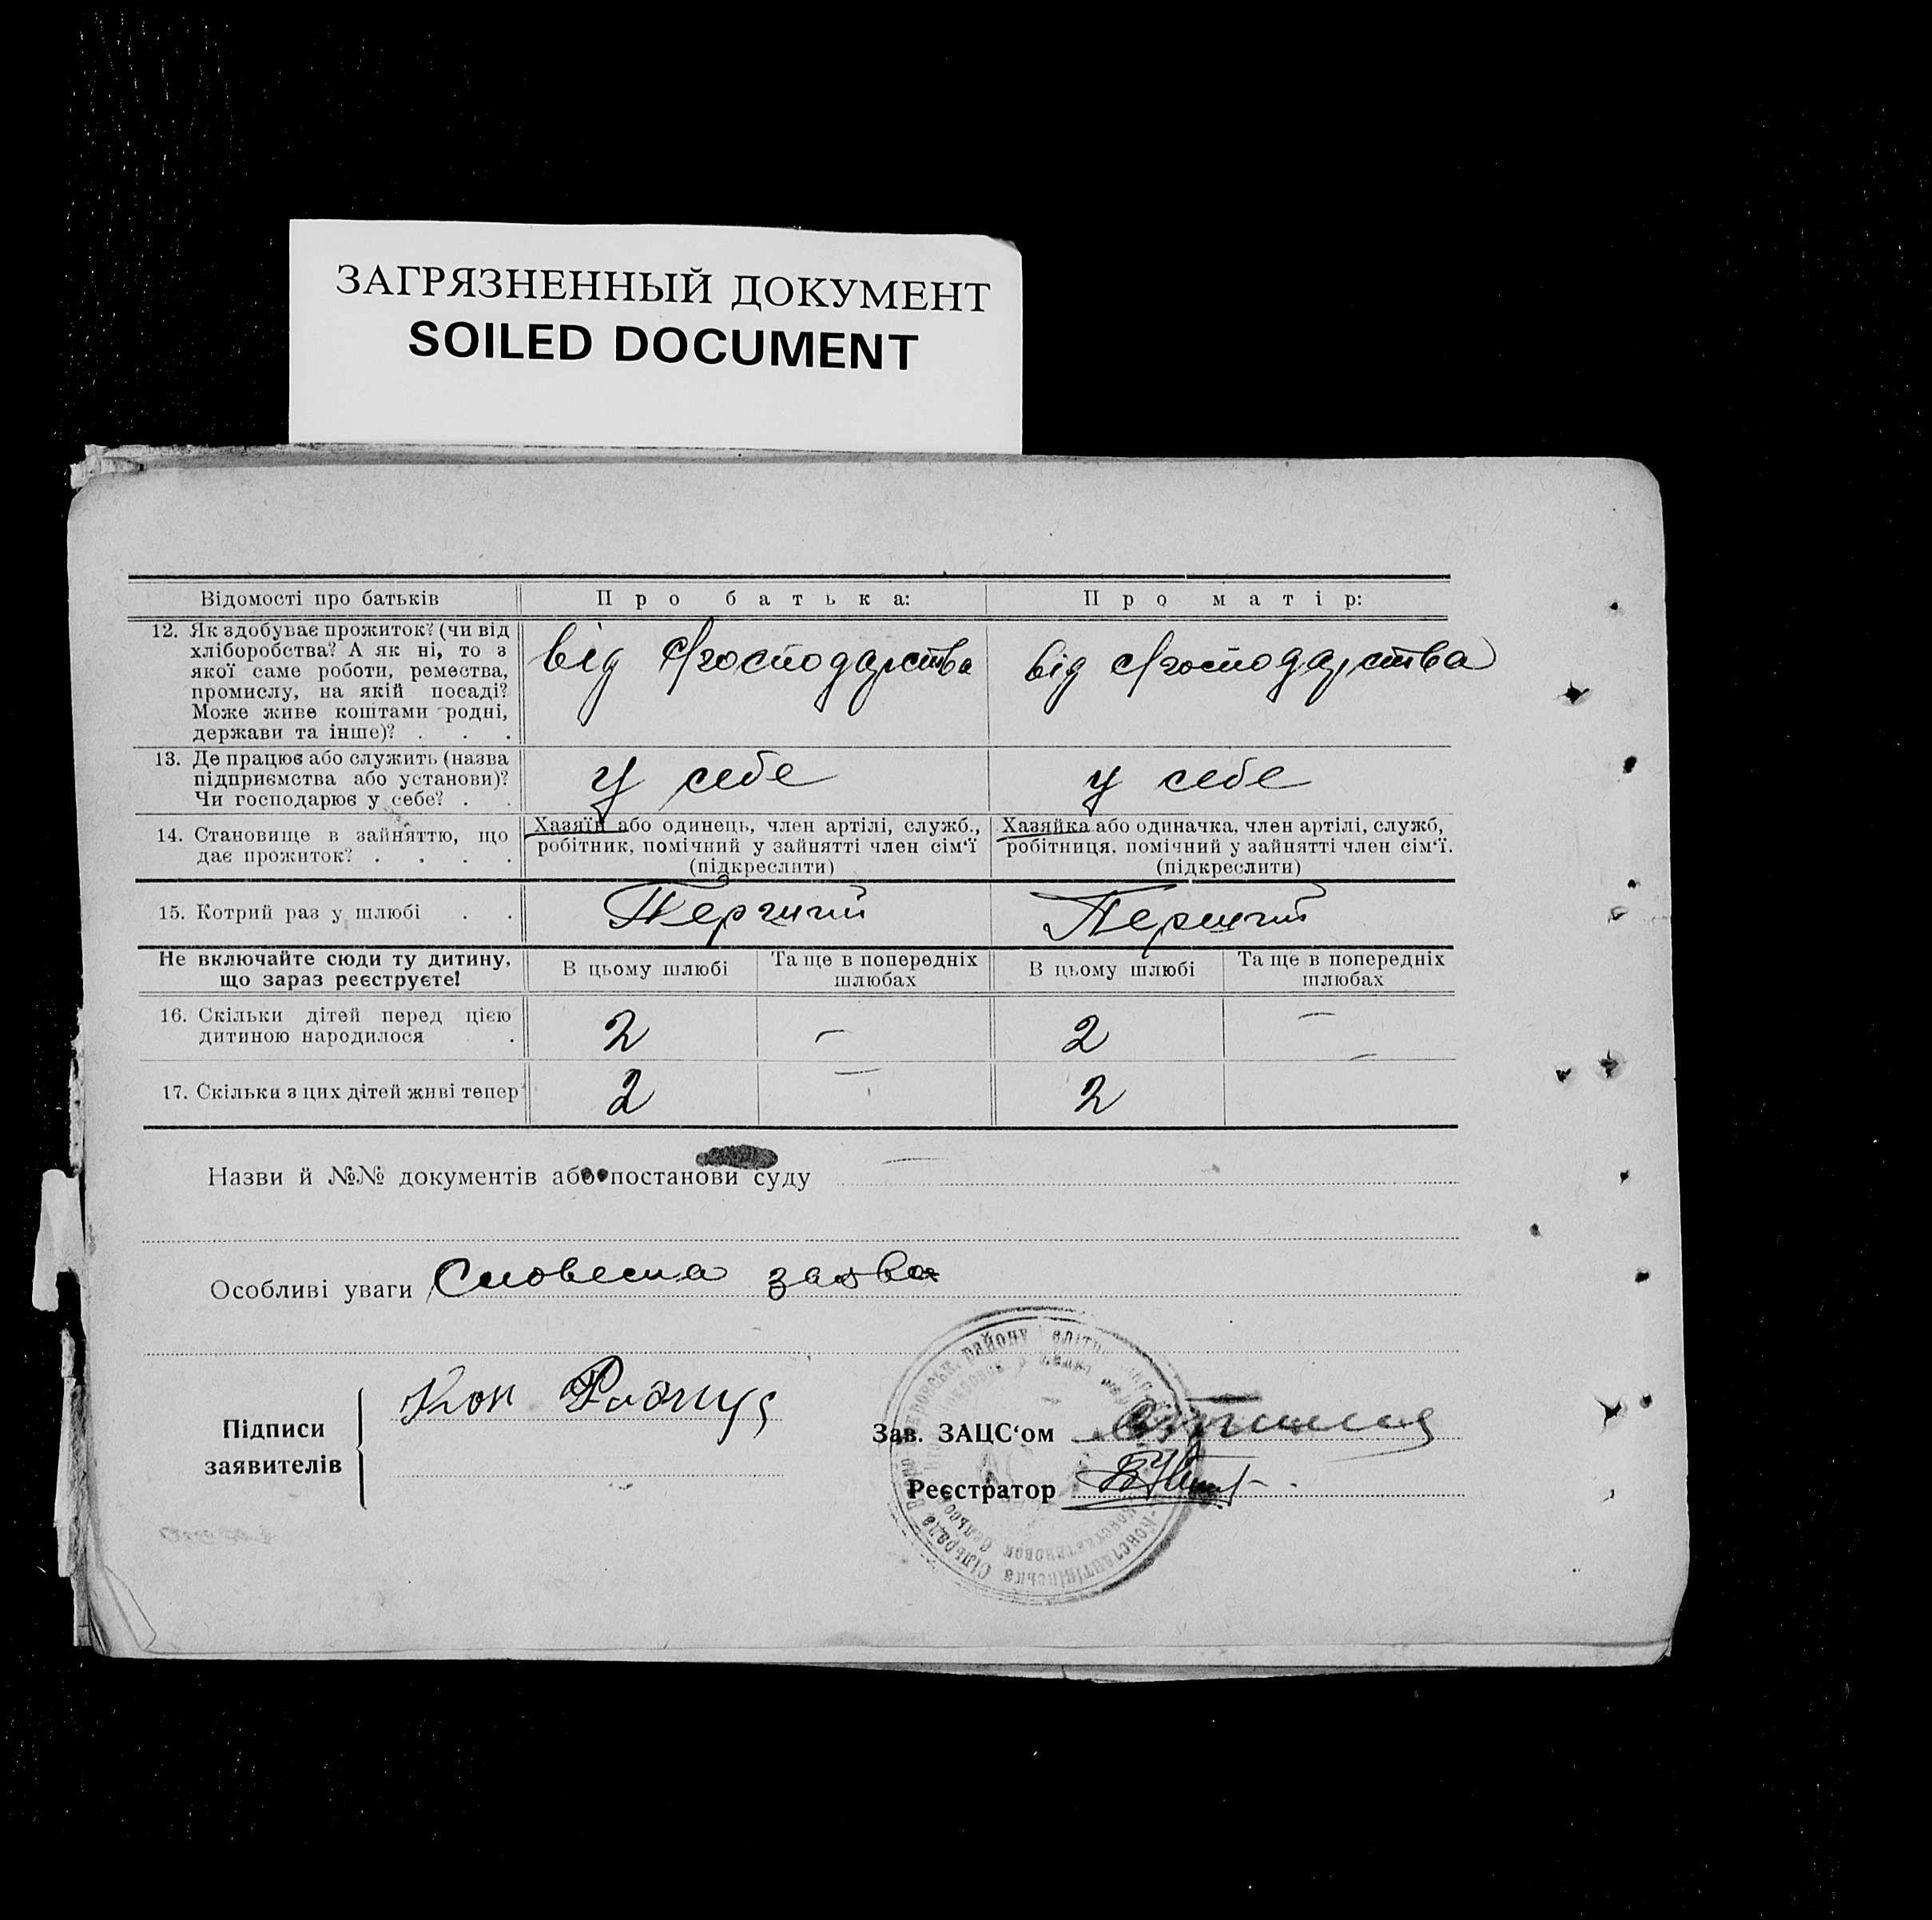 ЗАГРЯЗНЕННЫЙ ДОКУМЕНТ
SOILED DOCUMENT
Відомості про батьків
Про батька:
Про матір:
12. Як здобуває прожиток? (чи від
хліборобства? А як ні, то з
якої саме роботи, ремества,
промислу, на якій посаді?
Може живе коштами родні,
держави та інше)? . . .
від господарства
від господарства
13. Де працює або служить (назва
підприємства або установи)?
Чи господарює у себе? . .
у себе
у себе
14. Становище в зайняттю, що
дає прожиток? . . . .
Хазяїн або одинець, член артілі, служб.,
робітник, помічний у зайнятті член сім‘ї
(підкреслити)
Хазяйка або одиначка, член артілі, служб,
робітниця, помічний у зайнятті член сім‘ї.
(підкреслити)
15. Котрий раз у шлюбі . .
Перший
Перший
Не включайте сюди ту дитину,
що зараз реєструєте!
В цьому шлюбі
Та ще в попередніх
шлюбах
В цьому шлюбі
Та ще в попередніх
шлюбах
16. Скільки дітей перед цією
дитиною народилося .
2
–
2
–
17. Скільки з цих дітей живі тепер
2
–
2
–
Назви й №№ документів або постанови суду –
Особливі уваги Словесна заява
Підписи
заявителів
Кон
Зав. ЗАЦС‘ом
Реєстратор